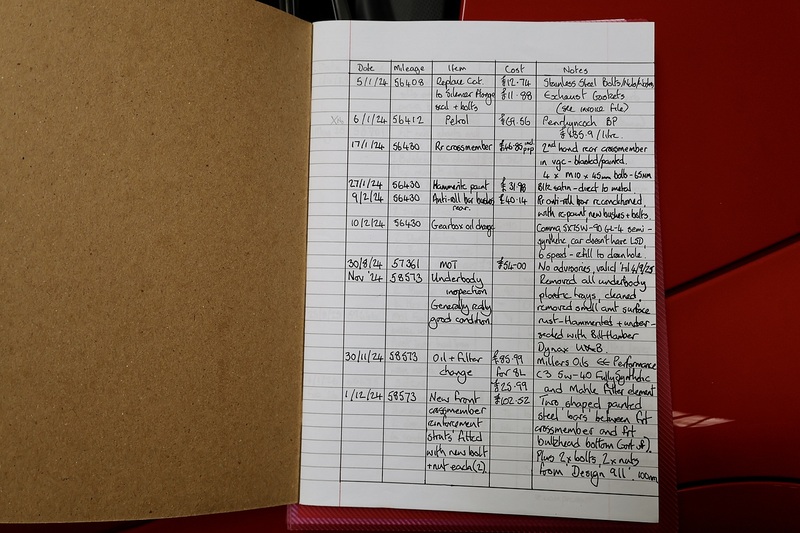 Date Mileage Item Cost Notes
5/1/24 56408 Replace Cat £12.74 Stainless Steel Bolts/Nuts/
to Silencer Flange £11.88 Exhaust Gaskets
seal + bolts (see invoice file)
6/1/24 56412 Petrol £69.56 Penrhyncoch BP
£135.9/litre
17/1/24 56430 Rr crossmember £46.85 2nd hand rear crossmember
in vgc - blasted/painted.
4 x M10 x 45mm bolts - 65Nm
27/1/24 56430 Hammerite paint £31.98 Blk satin - direct to metal
9/2/24 56430 Anti-roll bar bushes £40.14 Rr anti-roll bar reconditioned,
rear. with repaint, new bushes + bolts.
10/2/24 56430 Gearbox oil change Comma SX75W-90 GL-4 semi-
synthetic, car doesn't have LSD,
6 speed - refill to drain hole.
30/8/24 57361 MOT £54-00 No advisories, valid 'til 4/9/25
Nov '24 58573 Underbody Removed all underbody
inspection plastic trays, cleaned,
Generally really removed small amt surface
good condition. rust - Hammerited + under-
sealed with Bilt Hamber
Dynax UB.
30/11/24 58573 Oil + Filter £85.99 Millers Oils EE Performance
change for 8L C3 5w-40 Fully Synthetic
£25.99 and Mahle Filter element
1/12/24 58573 New front £102.52 Two, shaped, painted
crossmember steel bars between frt
reinforcement crossmember and frt
struts fitted bulkhead bottom (sort of).
with new bolt Plus 2 x bolts, 2 x nuts
+ nut each (2). from 'Design 911'. 100nm